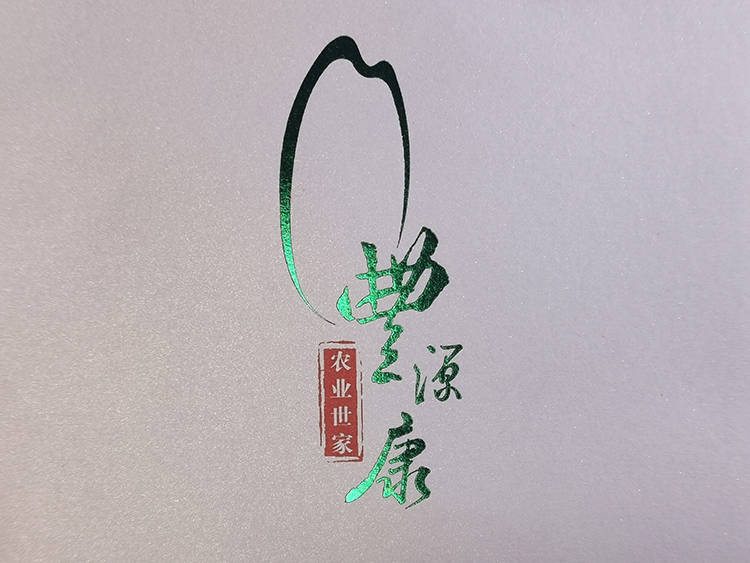 豐源康
农业世家